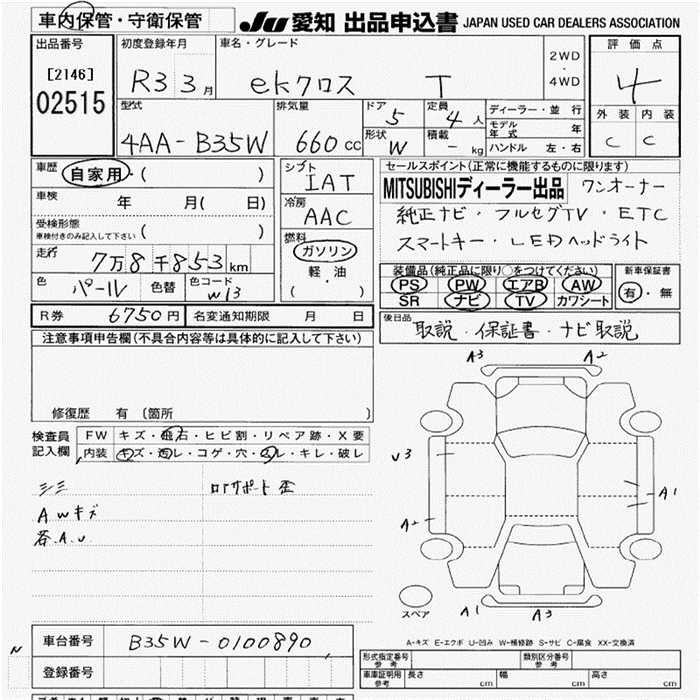 車内保管・守衛保管 JU 愛知 出品申込書 JAPAN USED CAR DEALERS ASSOCIATION
出品番号 初度登録年月 車名・グレード 2WD・4WD 評価点
[2146] R3 3月 ekクロス T 4
02515 型式 排気量 ドア 5 定員 4人 ディーラー・並行 外装 内装
モデル年式 年
4AA-B35W 660cc 形状 W 積載 - kg ハンドル 左・右 C C
車歴 自家用・( ) シフト IAT セールスポイント(正常に機能するものに限ります)
車検 年 月( 日) 冷房 AAC MITSUBISHIディーラー出品 ワンオーナー
受検形態 純正ナビ・フルセグTV・ETC
車検付きのみ記入して下さい ( ) 燃料 スマートキー・LEDヘッドライト
走行 7万8千853km ガソリン 装備品(純正品に限り○をつけてください) 新車保証書
軽・油 PS PW エアB AW 有・無
色 パール 色替 色コード W13 ( ) SR ナビ TV カワシート
R券 6750円 名変通知期限 月 日 後日品 取説・保証書・ナビ取説
注意事項申告欄(不具合内容等は具体的に記入して下さい)
A3 A2
修復歴 有 (箇所 )
検査員記入欄 FW キズ・飛石・ヒビ割・リペア跡・X要
内装 キズ・汚レ・コゲ・穴・スレ・キレ・破レ
U3
シミ ロアサポート歪
A1
AWキズ A2
各A.U
スペア A1 A3
車台番号 B35W-0100890 A-キズ E-エクボ U-凹み W-補修跡 S-サビ C-腐食 XX-交換済
N 登録番号 形式指定番号 参考 類別区分番号 参考
車庫証明用 参考 長さ cm 幅 cm 高さ cm